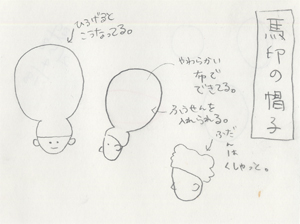 馬印の帽子
ひろげると
こうなってる。
やわらかい
布で
できてる。
ふうせんを
入れられる。
ふだん
は
くしゃっと。